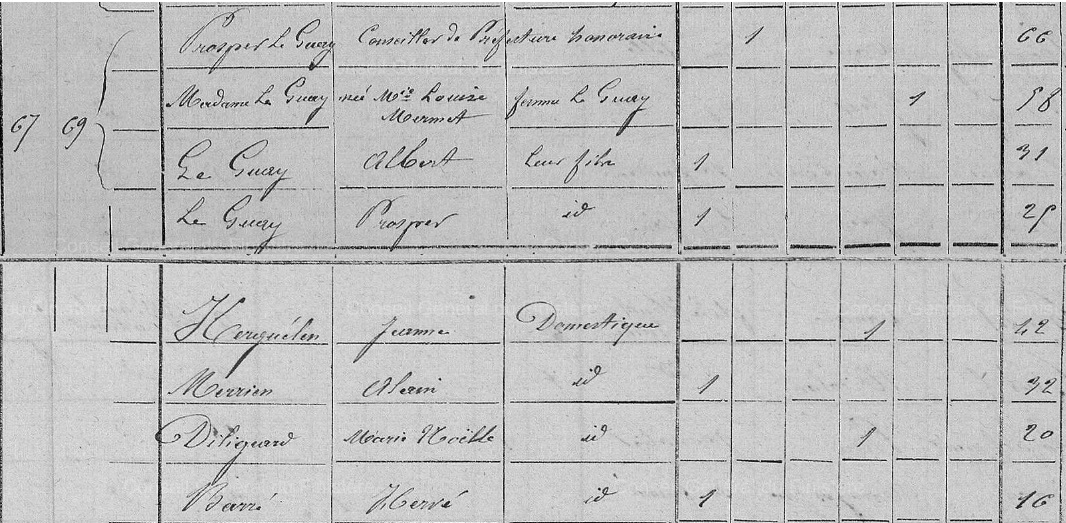 Prosper Le Guay Conseiller de Préfecture honoraire 1 66
Madame Le Guay née Mie Louise femme Le Guay 1 58
Mermet
67 69 Le Guay Albert leur fils 1 31
Le Guay Prosper id 1 25
Kerguélen Jeanne Domestique 1 42
Merrien Alain id 1 32
Diliguard Marie Noëlle id 1 20
Barré Hervé id 1 16